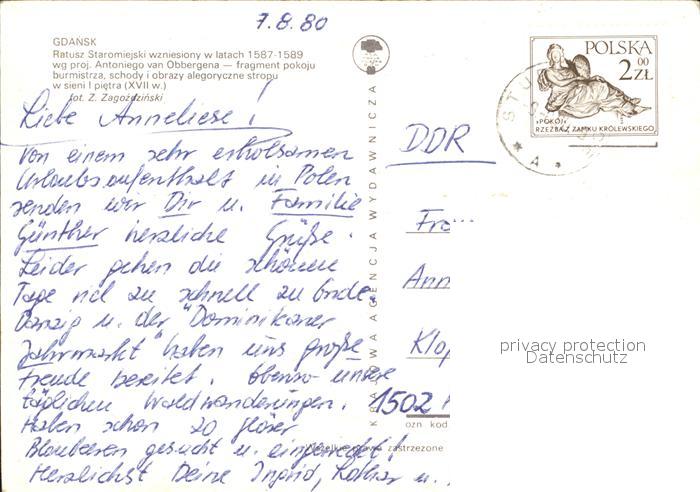 7.8.80
GDAŃSK
Ratusz Staromiejski wzniesiony w latach 1587-1589
wg proj. Antoniego van Obbergena — fragment pokoju
burmistrza, schody i obrazy alegoryczne stropu
w sieni I piętra (XVII w.)
fot. Z. Zagoździński
Liebe Anneliese!
Von einem sehr erholsamen
Urlaubsaufenthalt in Polen
senden wir Dir u. Familie
Günther herzliche Grüße.
Leider gehen die schönen
Tage viel zu schnell zu Ende.
Danzig u. der "Dominikaner
Jahrmarkt" haben uns große
Freude bereitet. Ebenso unsere
täglichen Waldwanderungen.
Haben schon 20 Gläser
Blaubeeren gesucht u. eingeweckt!
Herzlichst Deine Ingrid, Lothar u.
KRAJOWA AGENCJA WYDAWNICZA
POLSKA
2 00 ZŁ
«POKÓJ»
RZEŹBA Z ZAMKU KRÓLEWSKIEGO
DDR
Fra
Ann
Klop
1502
ozn kod
zastrzeżone
privacy protection
Datenschutz